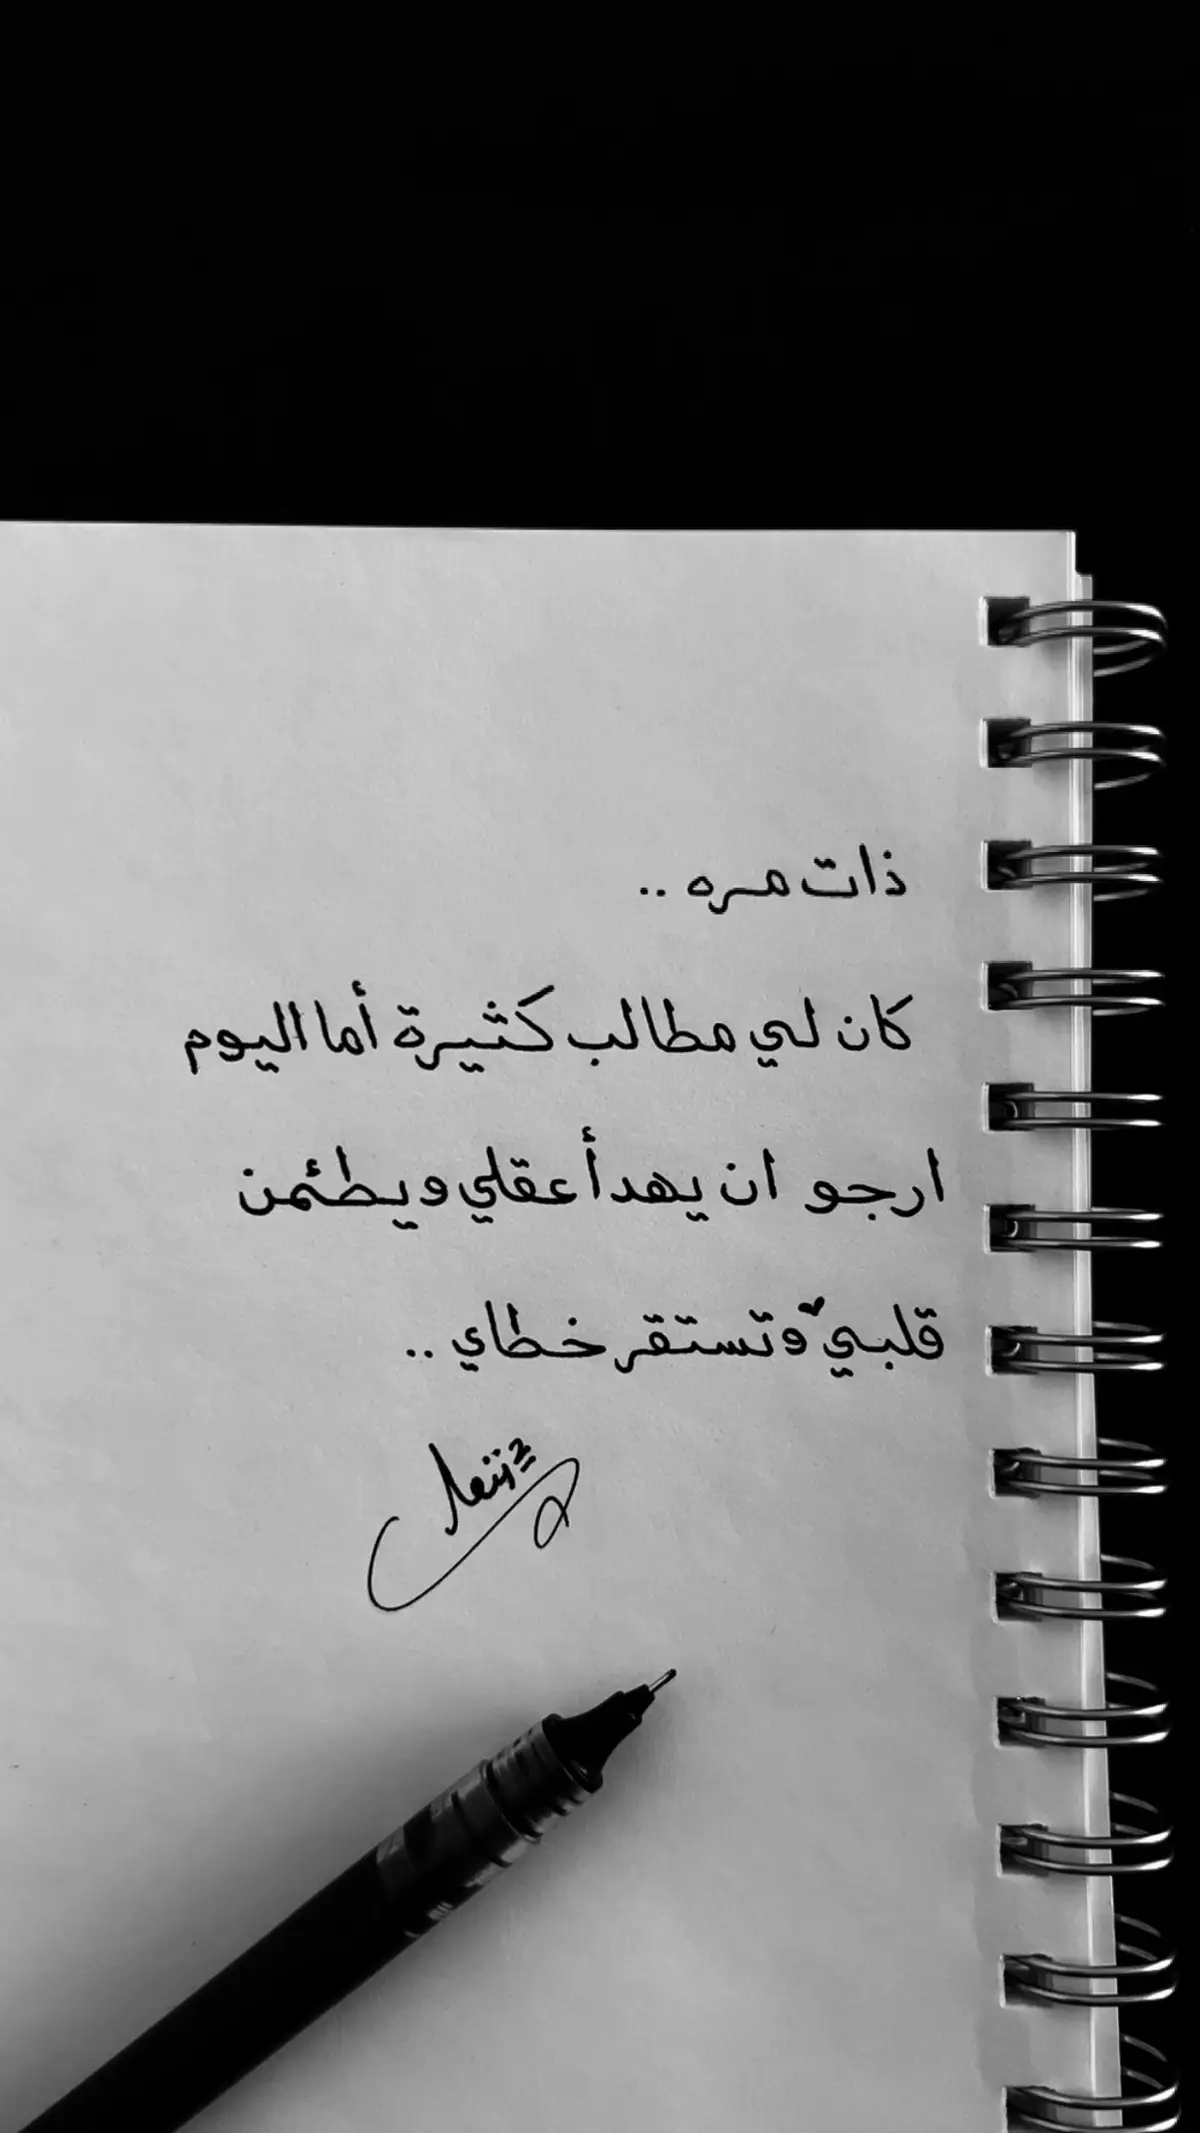 ذات مره ..
كان لي مطالب كثيرة أما اليوم
ارجو ان يهدأ عقلي ويطئمن
قلبي وتستقر خطاي ..